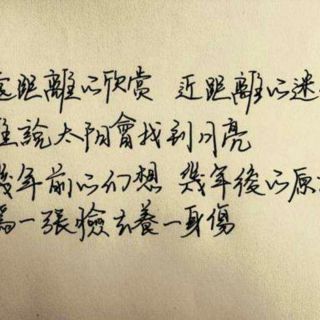 遠距離的欣賞 近距離的迷
誰說太阳會找到月亮
幾年前的幻想 幾年後的原
為一張臉去養一身傷